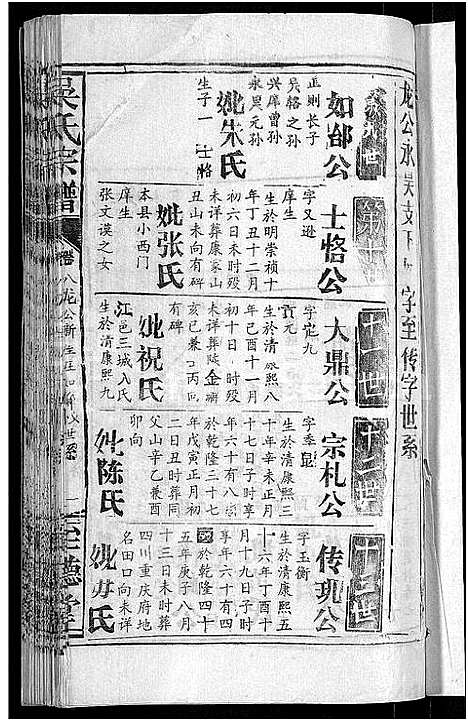 龙公永吴支下
字至传字世系
如邰公
正则长子
吴辂之孙
兴庠曾孙
永昊元孙
妣朱氏
生子一
士恪
士恪公
字又逊
庠生
生於明崇祯十
年丁丑十二月
初六日未时殁
未详葬康家山
丑山未向有碑
妣张氏
本县小西门
庠生
张文谟之女
十一世
大鼎公
生於清康熙八
年己酉十一月
初十日
时殁
未详葬
亥巳兼
丙
有碑
妣祝氏
江邑三城入氏
生於清康熙九
十二世
宗札公
字季
生於清康熙三
十年辛未正月
十七日子时享
年六十有八
於乾隆三十七
年戊寅正月初
二日丑时葬同
父山辛乙兼酉
卯向
妣陈氏
十三世
传玑公
字玉衡
生於清康熙五
十六年丁酉十
月十九日子时
享年六十有四
於乾隆四十
五年庚子八月
十三日未时葬
四川重庆府地
名田口向未详
妣毋氏
吴氏宗谱
卷八龙公
世系
一
至德堂